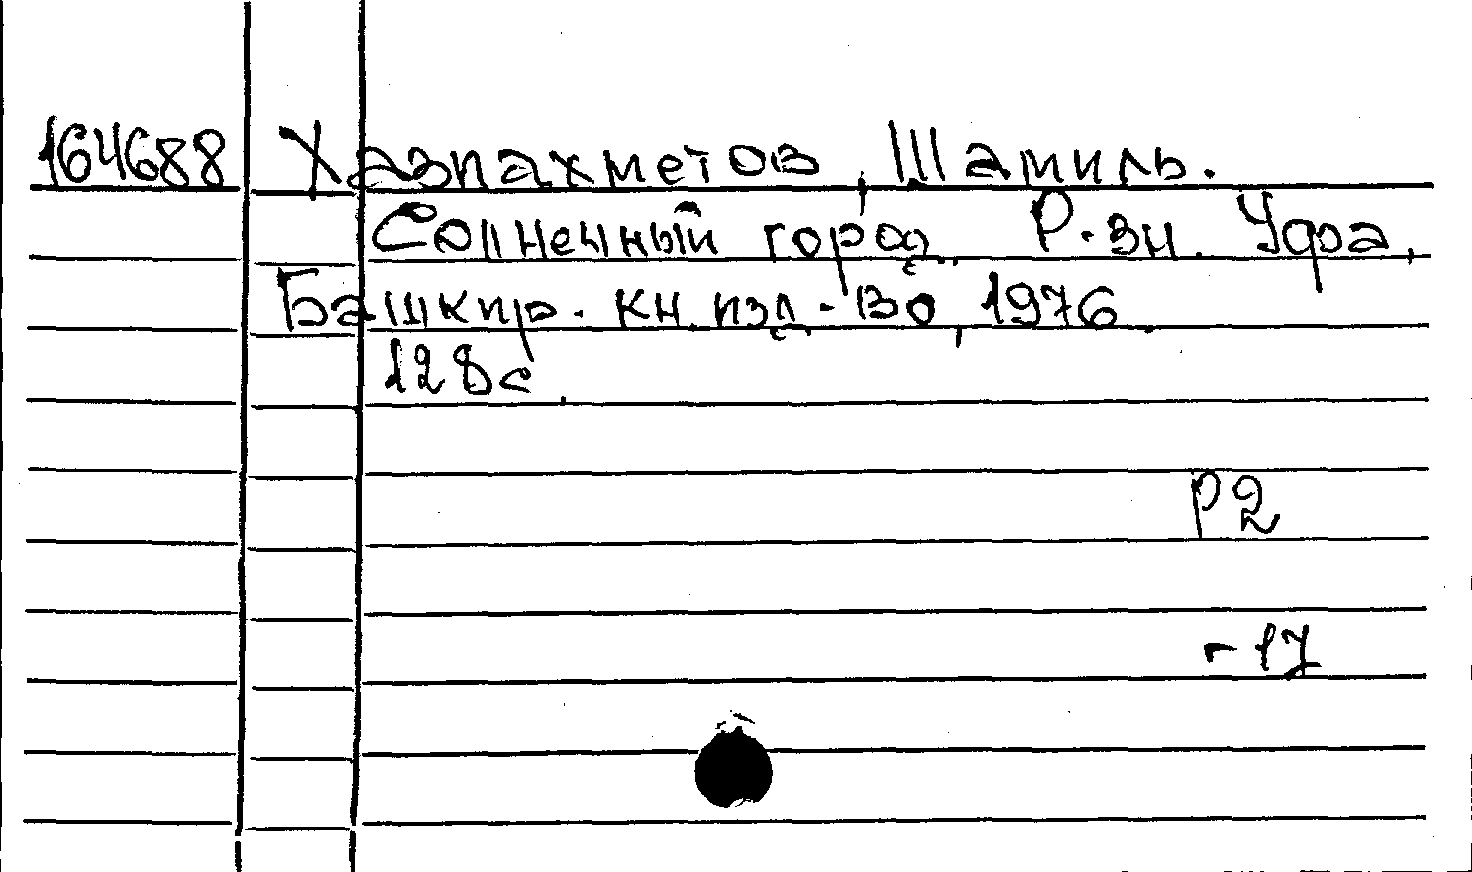 164688 Хазиахметов, Шамиль.
Солнечный город. Р-зы. Уфа,
Башкир. кн. изд-во, 1976.
128с.
Р2
-17